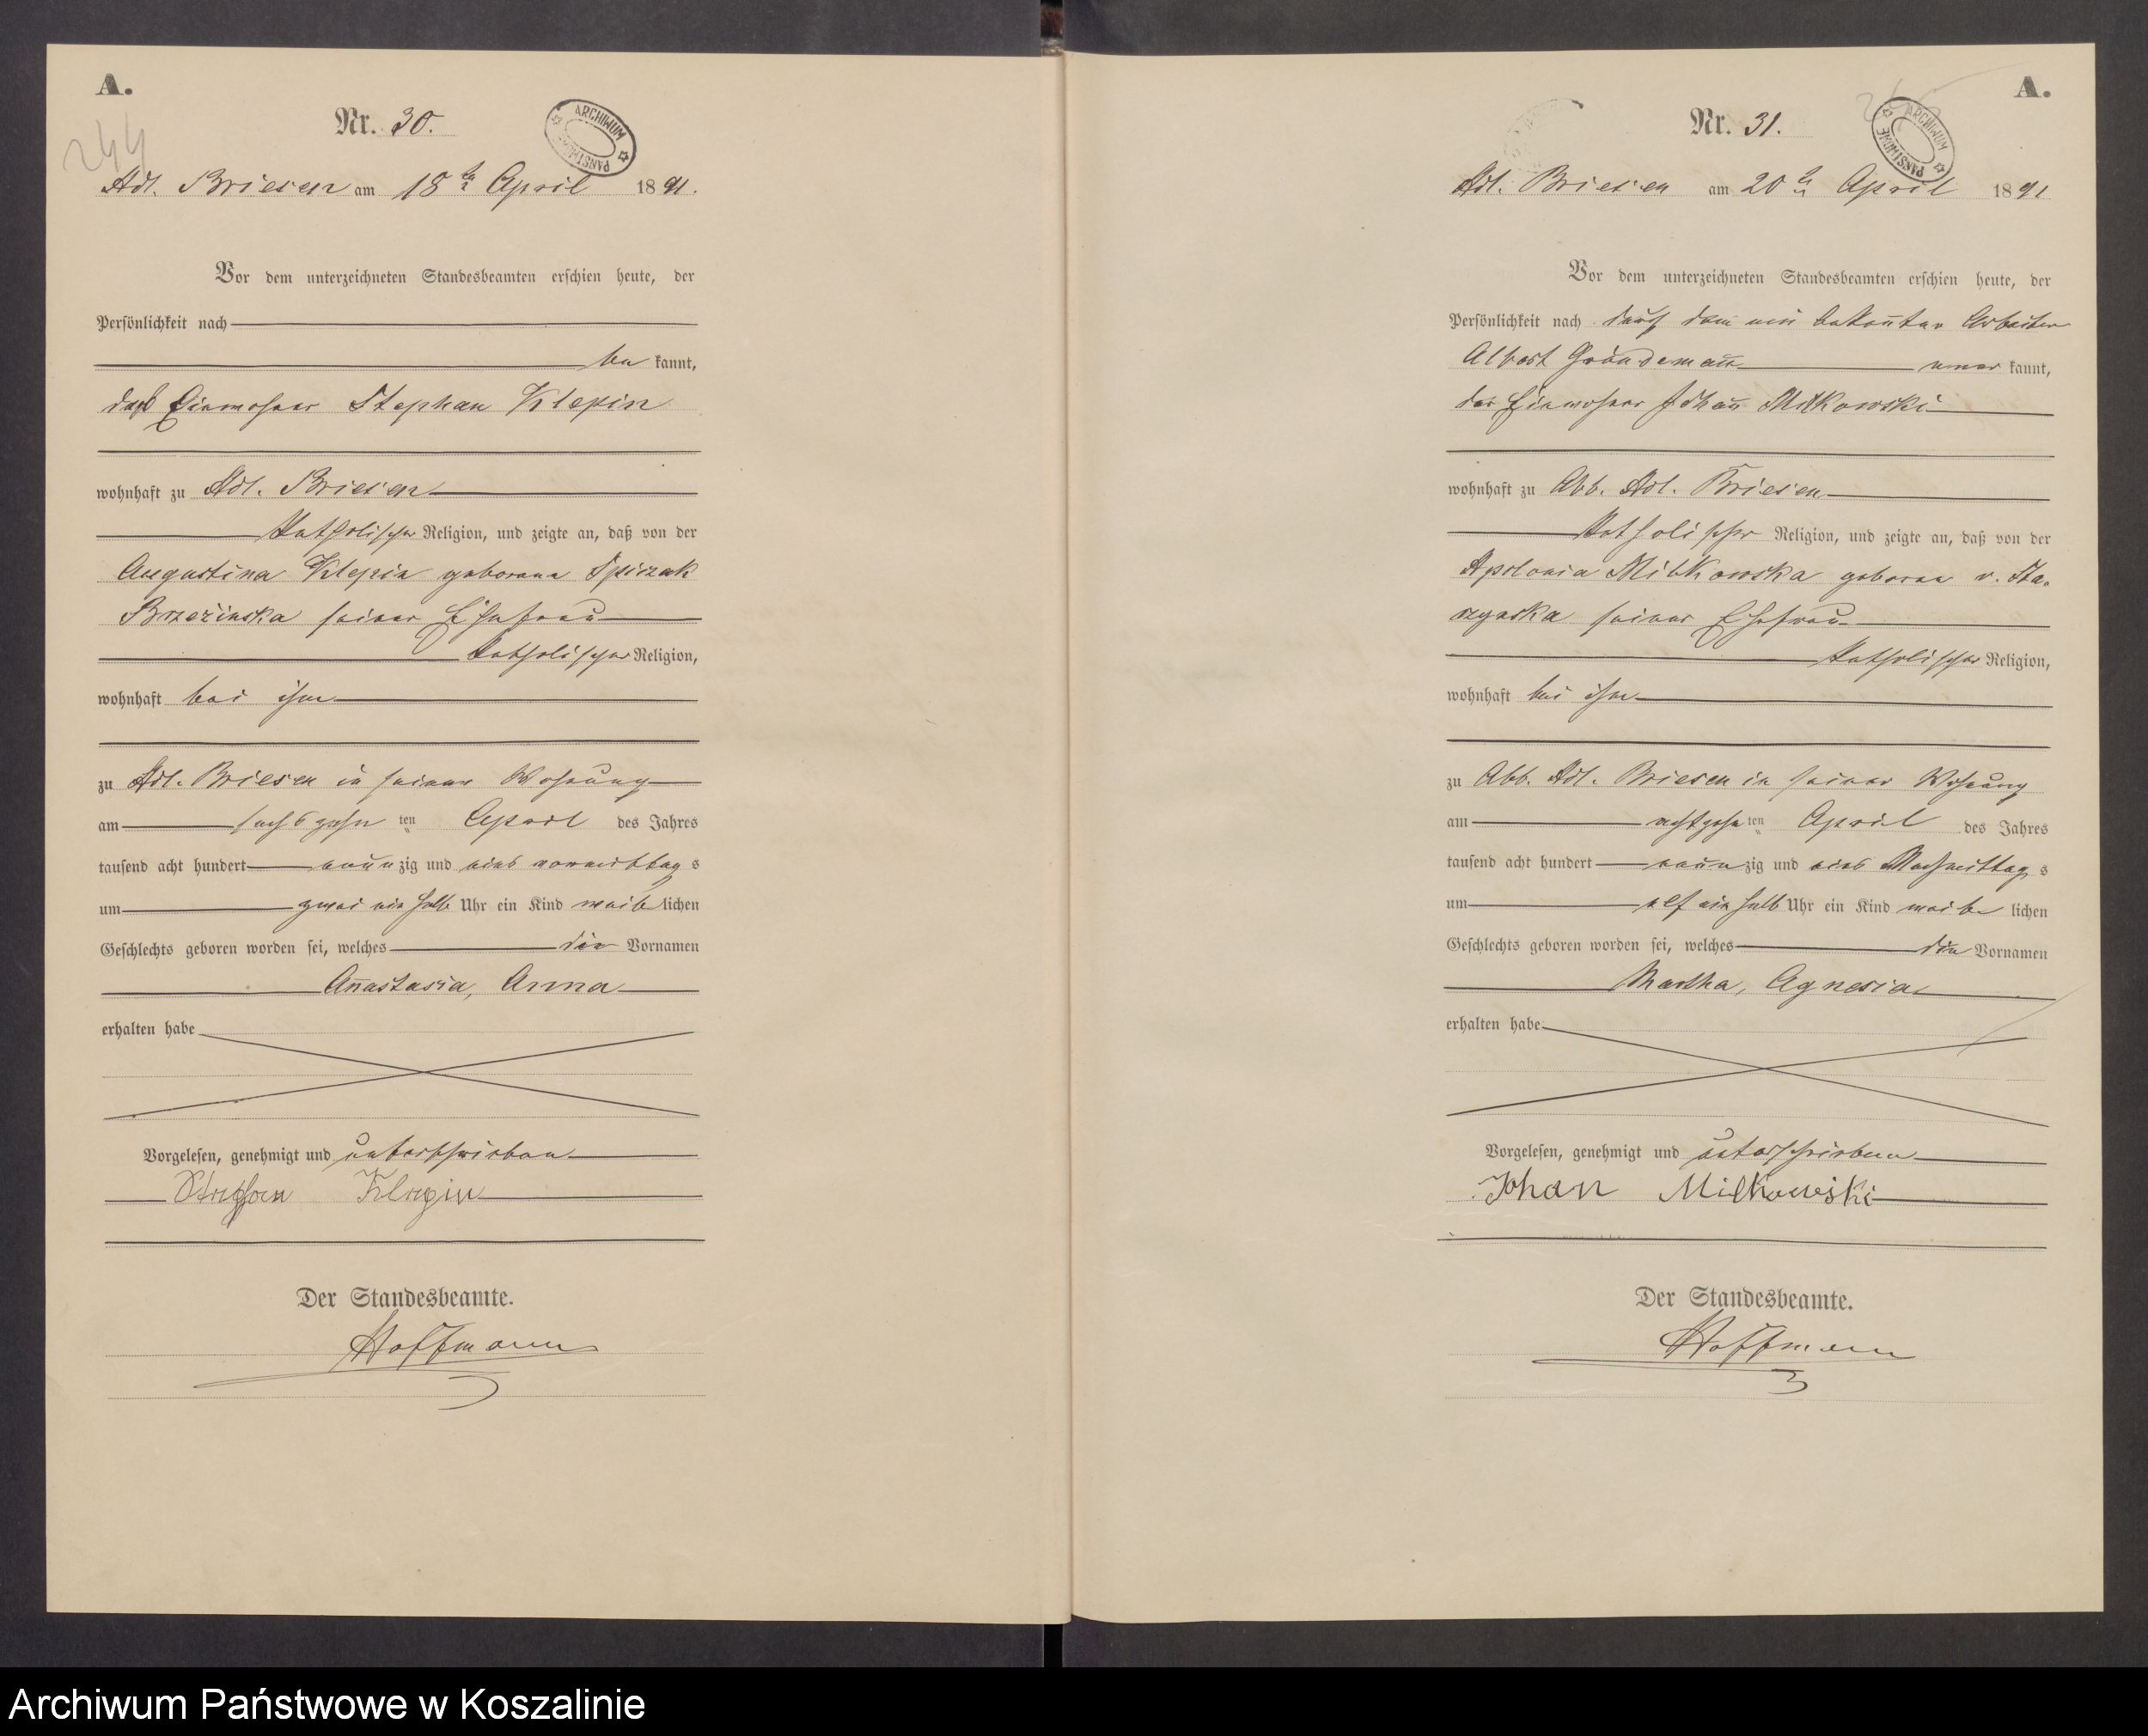 A.
244
Nr. 30.
ARCHIWUM PAŃSTWOWE
Adl. Briesen am 18ten April 1891.
Vor dem unterzeichneten Standesbeamten erschien heute, der
Persönlichkeit nach
be kannt,
der Einwohner Stephan Klepin
wohnhaft zu Adl. Briesen
katholischer Religion, und zeigte an, daß von der
Augustina Klepin geborene Spiczak
Brzezinska seiner Ehefrau
katholischer Religion,
wohnhaft bei ihm
zu Adl. Briesen in seiner Wohnung
am sechszehn ten April des Jahres
tausend acht hundert neunzig und eins vormittags
um zwei ein halb Uhr ein Kind weiblichen
Geschlechts geboren worden sei, welches die Vornamen
Anastasia, Anna
erhalten habe
Vorgelesen, genehmigt und unterschrieben
Stephan Klepin
Der Standesbeamte.
Hoffmann
A.
Nr. 31.
ARCHIWUM PAŃSTWOWE
Adl. Briesen am 20ten April 1891
Vor dem unterzeichneten Standesbeamten erschien heute, der
Persönlichkeit nach durch den ihm bekannten Arbeiter
Albert Gründemann aner kannt,
der Einwohner Johann Milkowski
wohnhaft zu Abb. Adl. Briesen
katholischer Religion, und zeigte an, daß von der
Apolonia Milkowska geborne v. Sta-
szyska seiner Ehefrau
katholischer Religion,
wohnhaft bei ihm
zu Abb. Adl. Briesen in seiner Wohnung
am achtzehn ten April des Jahres
tausend acht hundert neunzig und eins Nachmittags
um elf ein halb Uhr ein Kind weiblichen
Geschlechts geboren worden sei, welches die Vornamen
Martha, Agnesia
erhalten habe
Vorgelesen, genehmigt und unterschrieben
Johan Milkowski
Der Standesbeamte.
Hoffmann
Archiwum Państwowe w Koszalinie